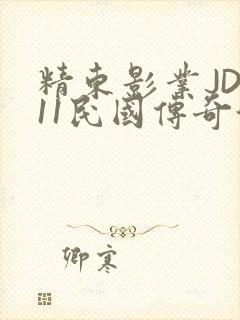 精東影業JD
11民國傳奇
卿寒